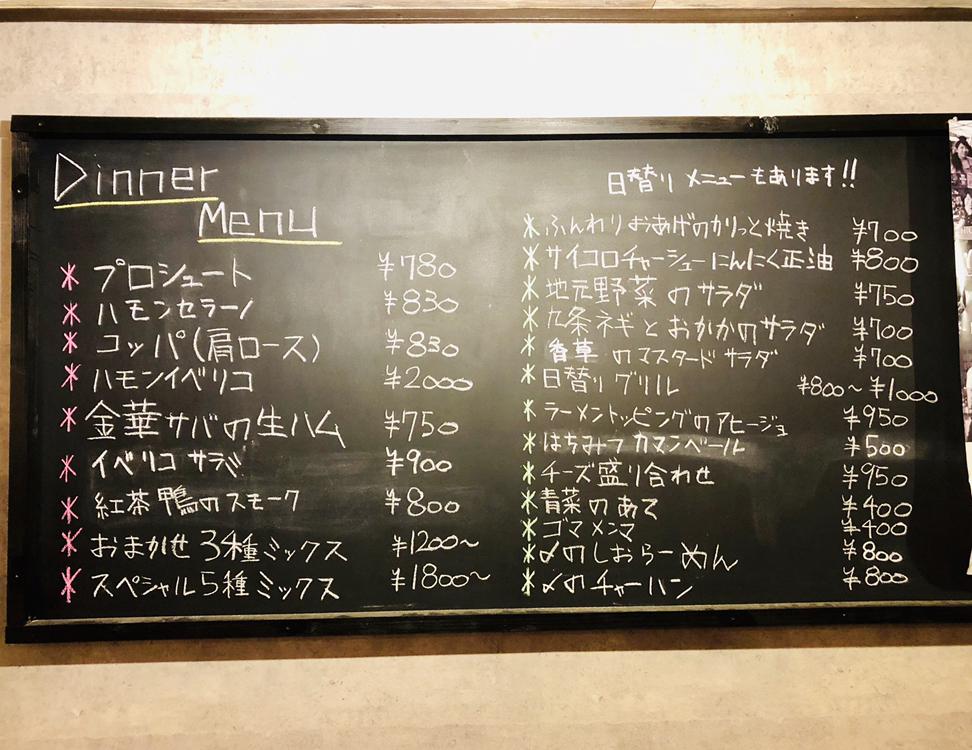 Dinner
Menu
* プロシュート ¥780
* ハモンセラーノ ¥830
* コッパ(肩ロース) ¥830
* ハモンイベリコ ¥2000
* 金華サバの生ハム ¥750
* イベリコサラミ ¥900
* 紅茶鴨のスモーク ¥800
* おまかせ3種ミックス ¥1200~
* スペシャル5種ミックス ¥1800~
日替りメニューもあります!!
* ふんわりおあげのカリっと焼き ¥700
* サイコロチャーシューにんにく正油 ¥800
* 地元野菜のサラダ ¥750
* 九条ネギとおかかのサラダ ¥700
* 香草のマスタードサラダ ¥700
* 日替りグリル ¥800~¥1000
* ラーメントッピングのアヒージョ ¥950
* はちみつカマンベール ¥500
* チーズ盛り合わせ ¥950
* 青菜のあて ¥400
* ゴマメンマ ¥400
* 〆のしおらーめん ¥800
* 〆のチャーハン ¥800